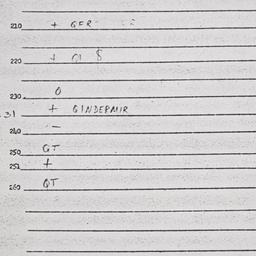 210 + GFR
220 +
230 0
231 + GINDEPAUR
240 -
250 GT
252 +
260 GT